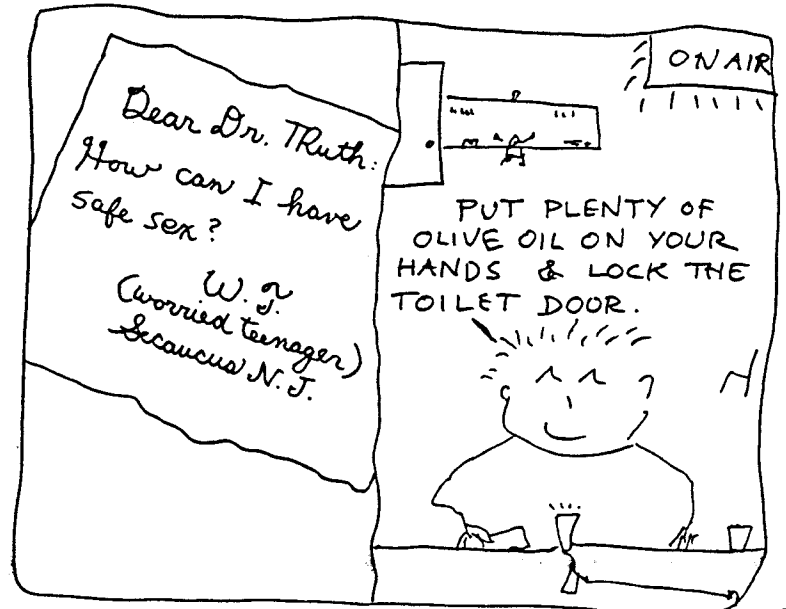 Dear Dr. TRuth:
How can I have
safe sex?
W. J.
(worried teenager)
Secaucus N.J.
ON AIR
PUT PLENTY OF
OLIVE OIL ON YOUR
HANDS & LOCK THE
TOILET DOOR.